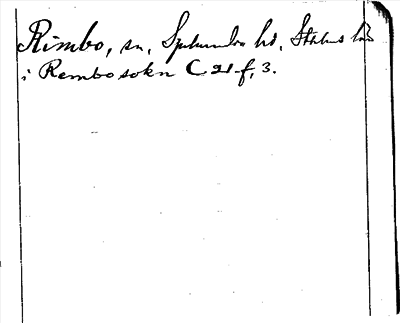 Rimbo, sn, Sjuhundra hd, Sthlms län
i Rembo sokn C 21 f, 3.